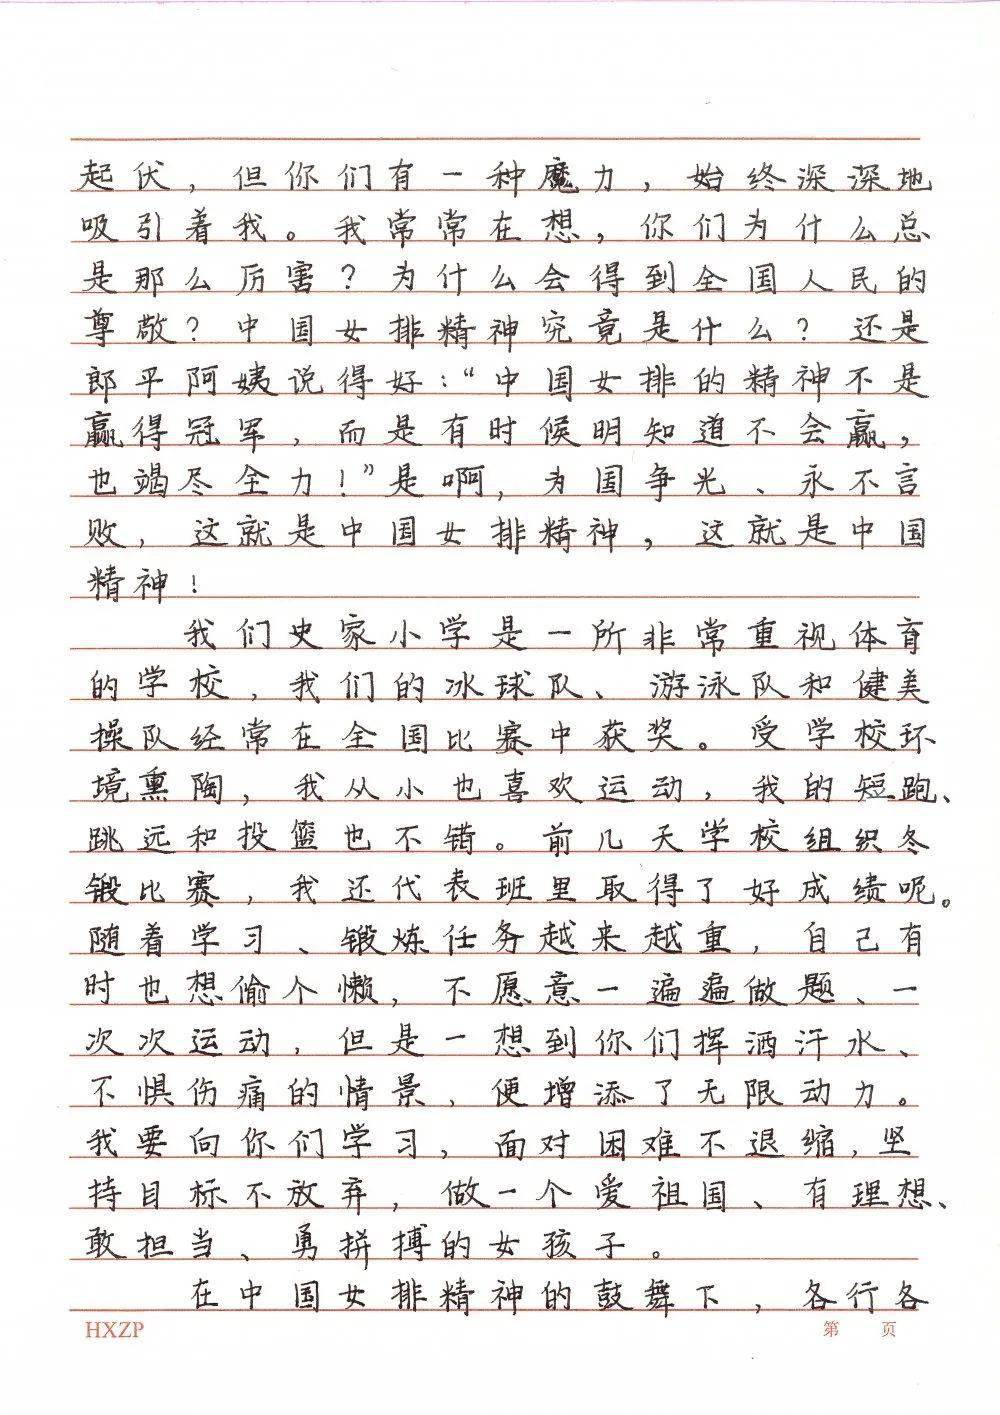 起伏，但你们有一种魔力，始终深深地
吸引着我。我常常在想，你们为什么总
是那么厉害？为什么会得到全国人民的
尊敬？中国女排精神究竟是什么？还是
郎平阿姨说得好：“中国女排的精神不是
赢得冠军，而是有时候明知道不会赢，
也竭尽全力！”是啊，为国争光、永不言
败，这就是中国女排精神，这就是中国
精神！
我们史家小学是一所非常重视体育
的学校，我们的冰球队、游泳队和健美
操队经常在全国比赛中获奖。受学校环
境熏陶，我从小也喜欢运动，我的短跑、
跳远和投篮也不错。前几天学校组织冬
锻比赛，我还代表班里取得了好成绩呢。
随着学习、锻炼任务越来越重，自己有
时也想偷个懒，不愿意一遍遍做题、一
次次运动，但是一想到你们挥洒汗水、
不惧伤痛的情景，便增添了无限动力。
我要向你们学习，面对困难不退缩，坚
持目标不放弃，做一个爱祖国、有理想、
敢担当、勇拼搏的女孩子。
在中国女排精神的鼓舞下，各行各
HXZP 第 页